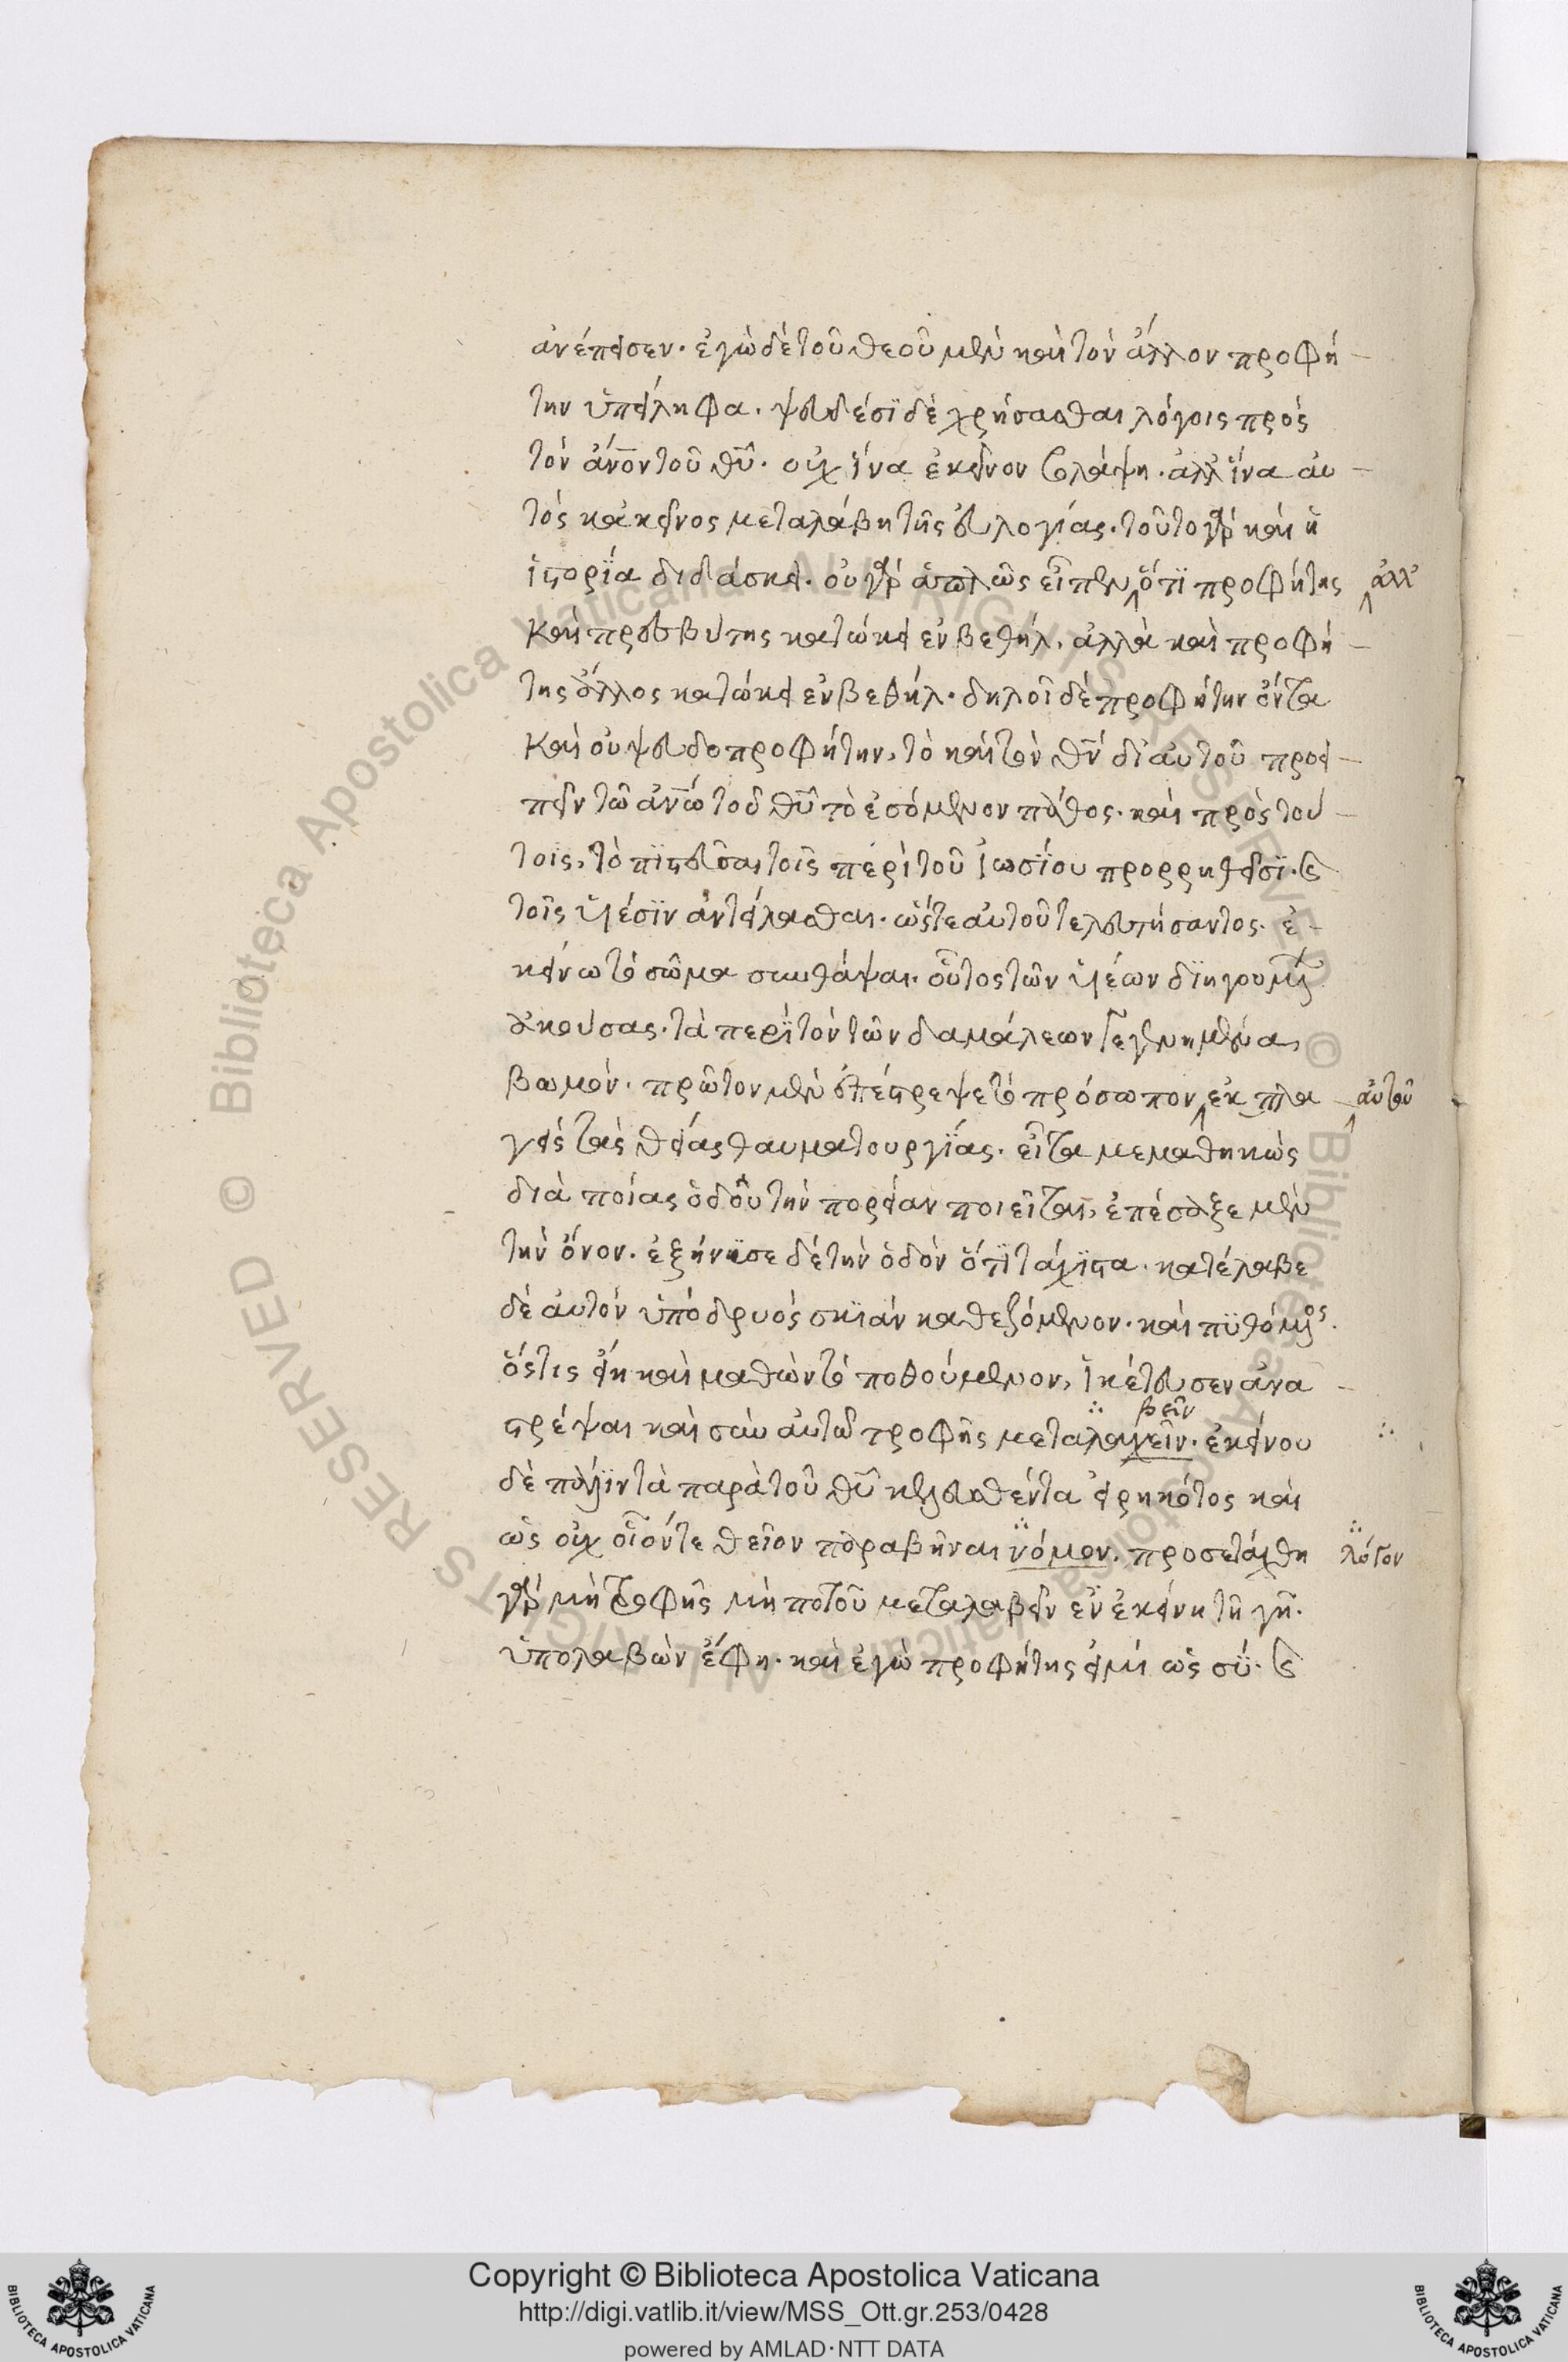 ἀνέπεισεν. ἐγὼ δὲ τοῦ θεοῦ μὲν καὶ τὸν ἄλλον προφή-
την ὑπείληφα. ψευδέσι δὲ χρήσασθαι λόγοις πρὸς
τὸν ἄνον τοῦ θῦ. οὐχ ἵνα ἐκεῖνον βλάψη. ἀλλ' ἵνα αὐ-
τὸς κἀκεῖνος μεταλάβη τῆς εὐλογίας. τοῦτο γὰρ καὶ ἡ
ἱστορία διδάσκει. οὐ γὰρ ἁπλῶς εἶπεν ὅτι προφήτης ἀλλ'
καὶ πρεσβύτης κατώκει ἐν βεθήλ. ἀλλὰ καὶ προφή-
της ἄλλος κατώκει ἐν βεθήλ. δηλοῖ δὲ προφήτην ὄντα
καὶ οὐ ψευδοπροφήτην, τὸ καὶ τὸν θν δι' αὐτοῦ προει-
πεῖν τῶ ἀνω τοῦ θῦ τὸ ἐσόμενον πάθος. καὶ πρὸς τού-
τοις, τὸ πιστεῦσαι τοῖς περὶ τοῦ ἰωσίου προρρηθεῖσι. καὶ
τοῖς ὑιέσιν ἀντείλασθαι. ὥστε αὐτοῦ τελευτήσαντος. ἐ-
κείνω τὸ σῶμα συνθάψαι. οὗτος τῶν ὑιέων διηγουμένων
ἀκούσας. τὰ περὶ τὸν τῶν δαμάλεων γεγενημένα
βωμὸν. πρῶτον μὲν ἐπέστρεψε τὸ πρόσωπον ἐκ πλα- αὐτοῦ
γεὶς τὰς θείας θαυματουργίας. εἶτα μεμαθηκὼς
διὰ ποίας ὁδοῦ τὴν πορείαν ποιεῖται, ἐπέσαξε μὲν
τὴν ὄνον. ἐξήνυσε δὲ τὴν ὁδὸν ὅτι τάχιστα. κατέλαβε
δὲ αὐτὸν ὑπὸ δρυὸς σκιὰν καθεζόμενον. καὶ πυθόμενος
ὅστις εἴη καὶ μαθὼν τὸ ποθούμενον, ἱκέτευσεν ἀνα-
στρέψαι καὶ σὺν αὐτῶ τροφῆς μεταλαχεῖν. ἐκείνου
βεῖν
δὲ πάλιν τὰ παρὰ τοῦ θῦ κελευσθέντα εἰρηκότος καὶ
ὡς οὐχ οἷόντε θεῖον παραβῆναι νόμον. προσετάχθη λόγον
γὰρ μὴ τροφῆς μὴ ποτοῦ μεταλαβεῖν ἐν ἐκείνη τῆ γῆ.
ὑπολαβὼν ἔφη. καὶ ἐγὼ προφήτης εἰμὶ ὡς σύ. καὶ
Copyright © Biblioteca Apostolica Vaticana
http://digi.vatlib.it/view/MSS_Ott.gr.253/0428
powered by AMLAD·NTT DATA
BIBLIOTECA APOSTOLICA VATICANA
BIBLIOTECA APOSTOLICA VATICANA
© Biblioteca Apostolica Vaticana ALL RIGHTS RESERVED
© Biblioteca Apostolica Vaticana ALL RIGHTS RESERVED